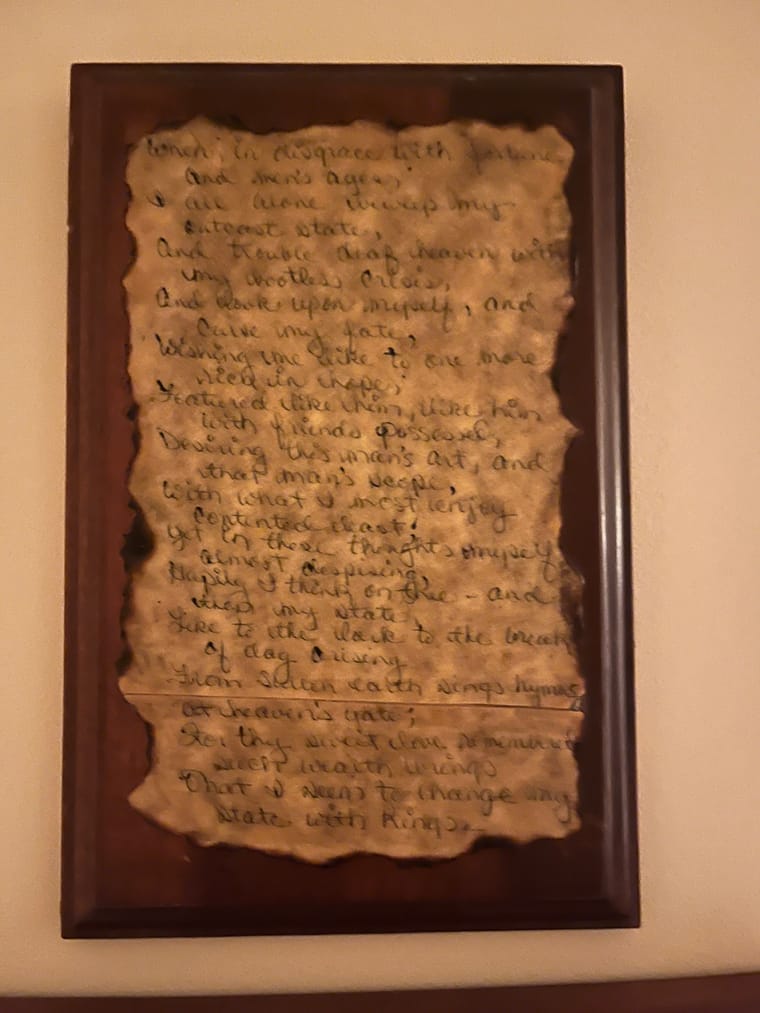 When, in disgrace with fortune
and men's ages,
I all alone beweep my
outcast state,
And trouble deaf heaven with
my bootless crisis,
And look upon myself, and
curse my fate,
Wishing me like to one more
rich in hope,
Featured like him, like him
with friends possessed,
Desiring this man's art, and
that man's scope,
With what I most enjoy
contented least;
Yet in these thoughts myself
almost despising,
Haply I think on thee - and
then my state,
Like to the lark to the break
of day arising
From sullen earth sings hymns
at heaven's gate;
For thy sweet love remembered
such wealth brings
That I seem to change my
state with Kings.